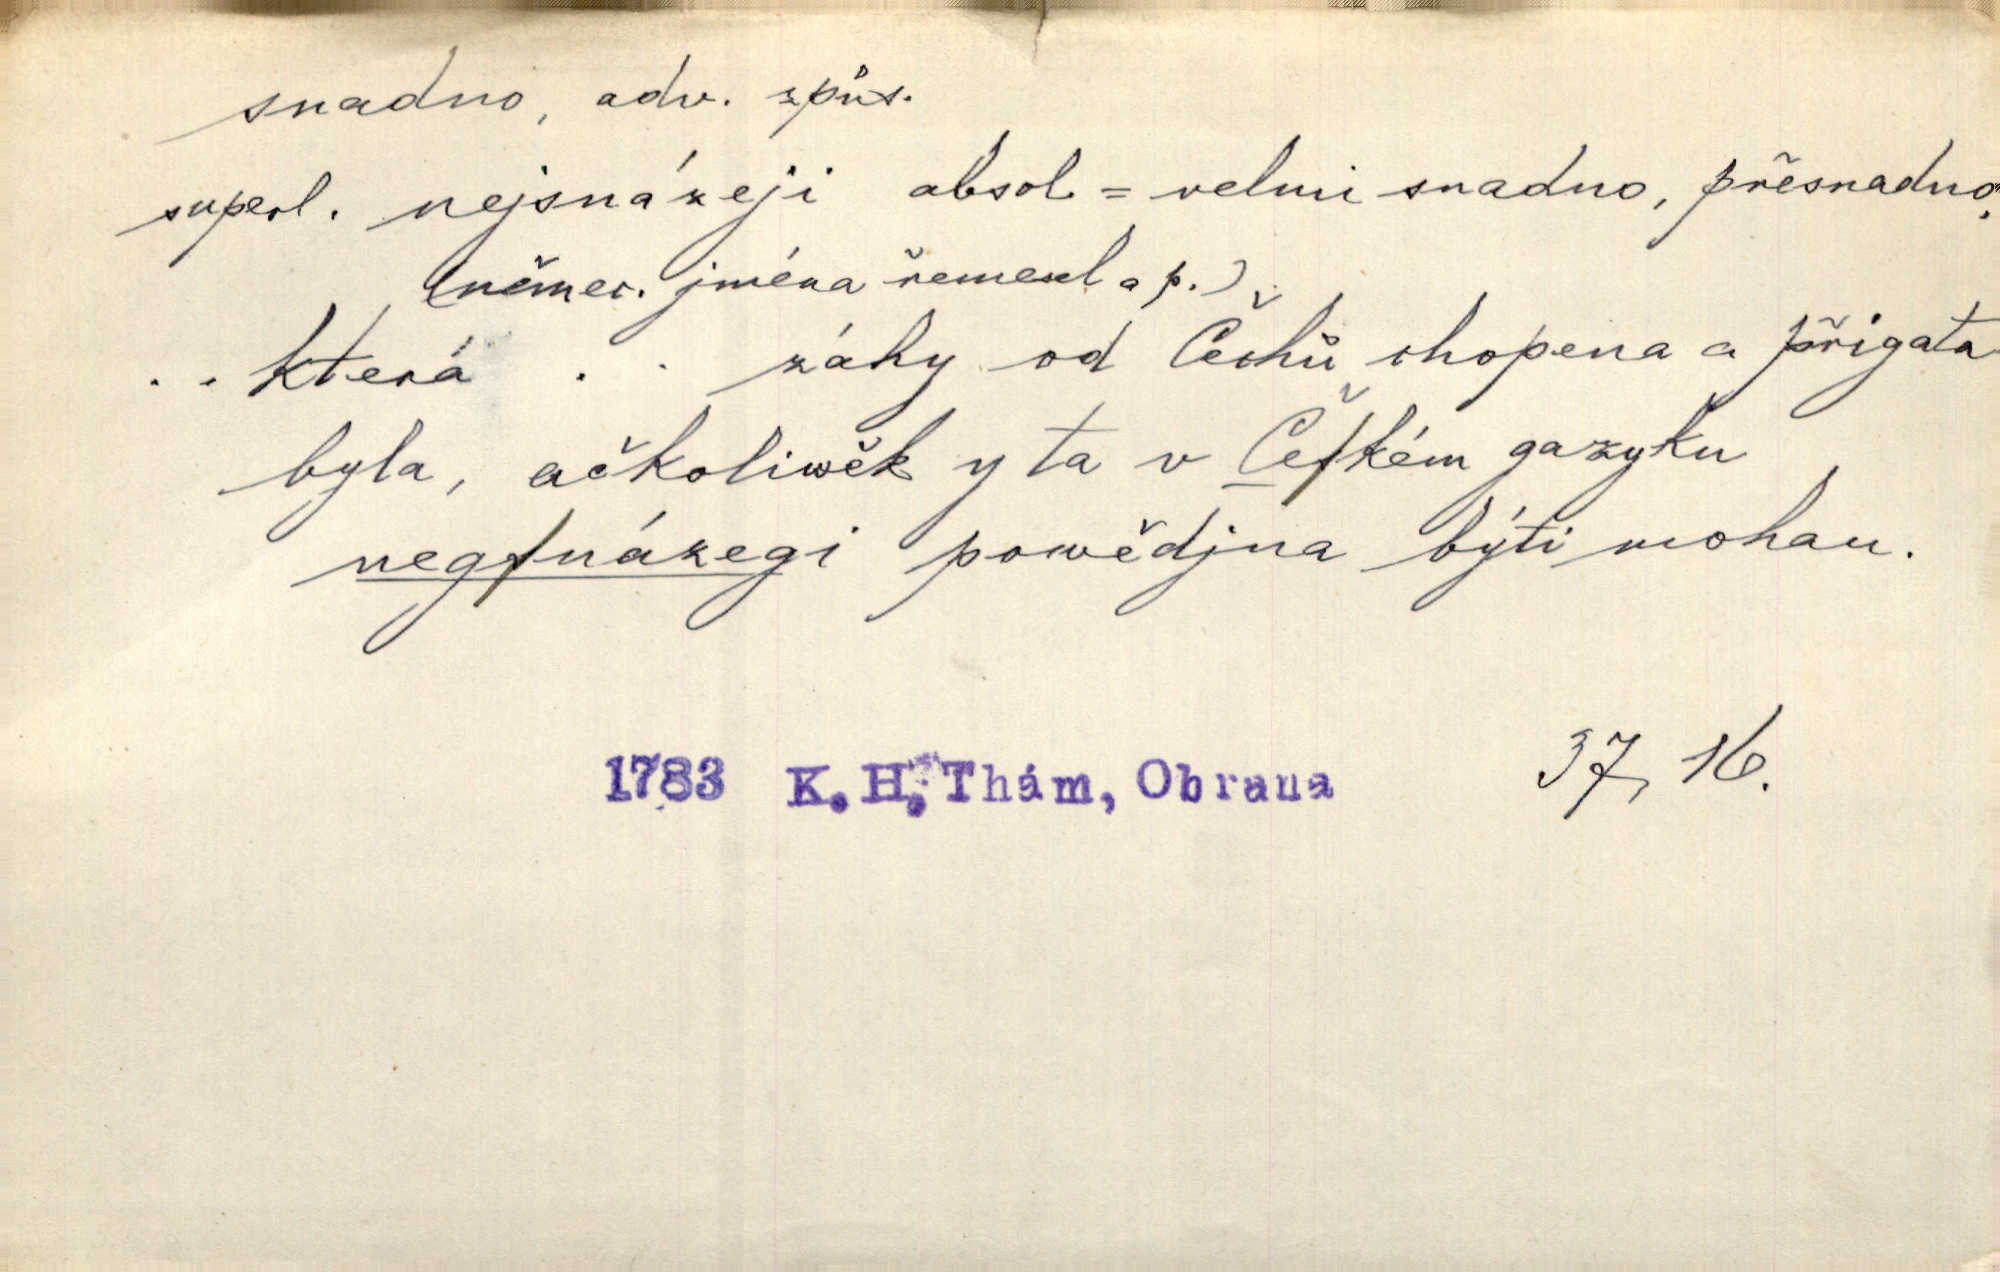 snadno, adv. způs.
superl. nejsnázeji absol. = velmi snadno, přesnadno,
(němec. jména řemesel a p.)
. . která . . záhy od Čechů chopena a přigata
byla, ačkoliwěk y ta v Čeſkém gazyku
negſnázegi powědjna býti mohau.
1783 K. H. Thám, Obrana 37, 16.